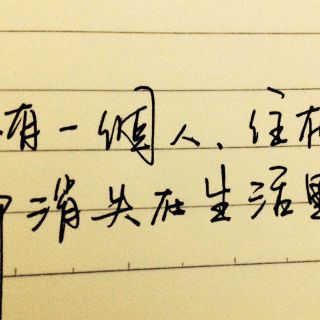 有一個人、住在
消失在生活裏